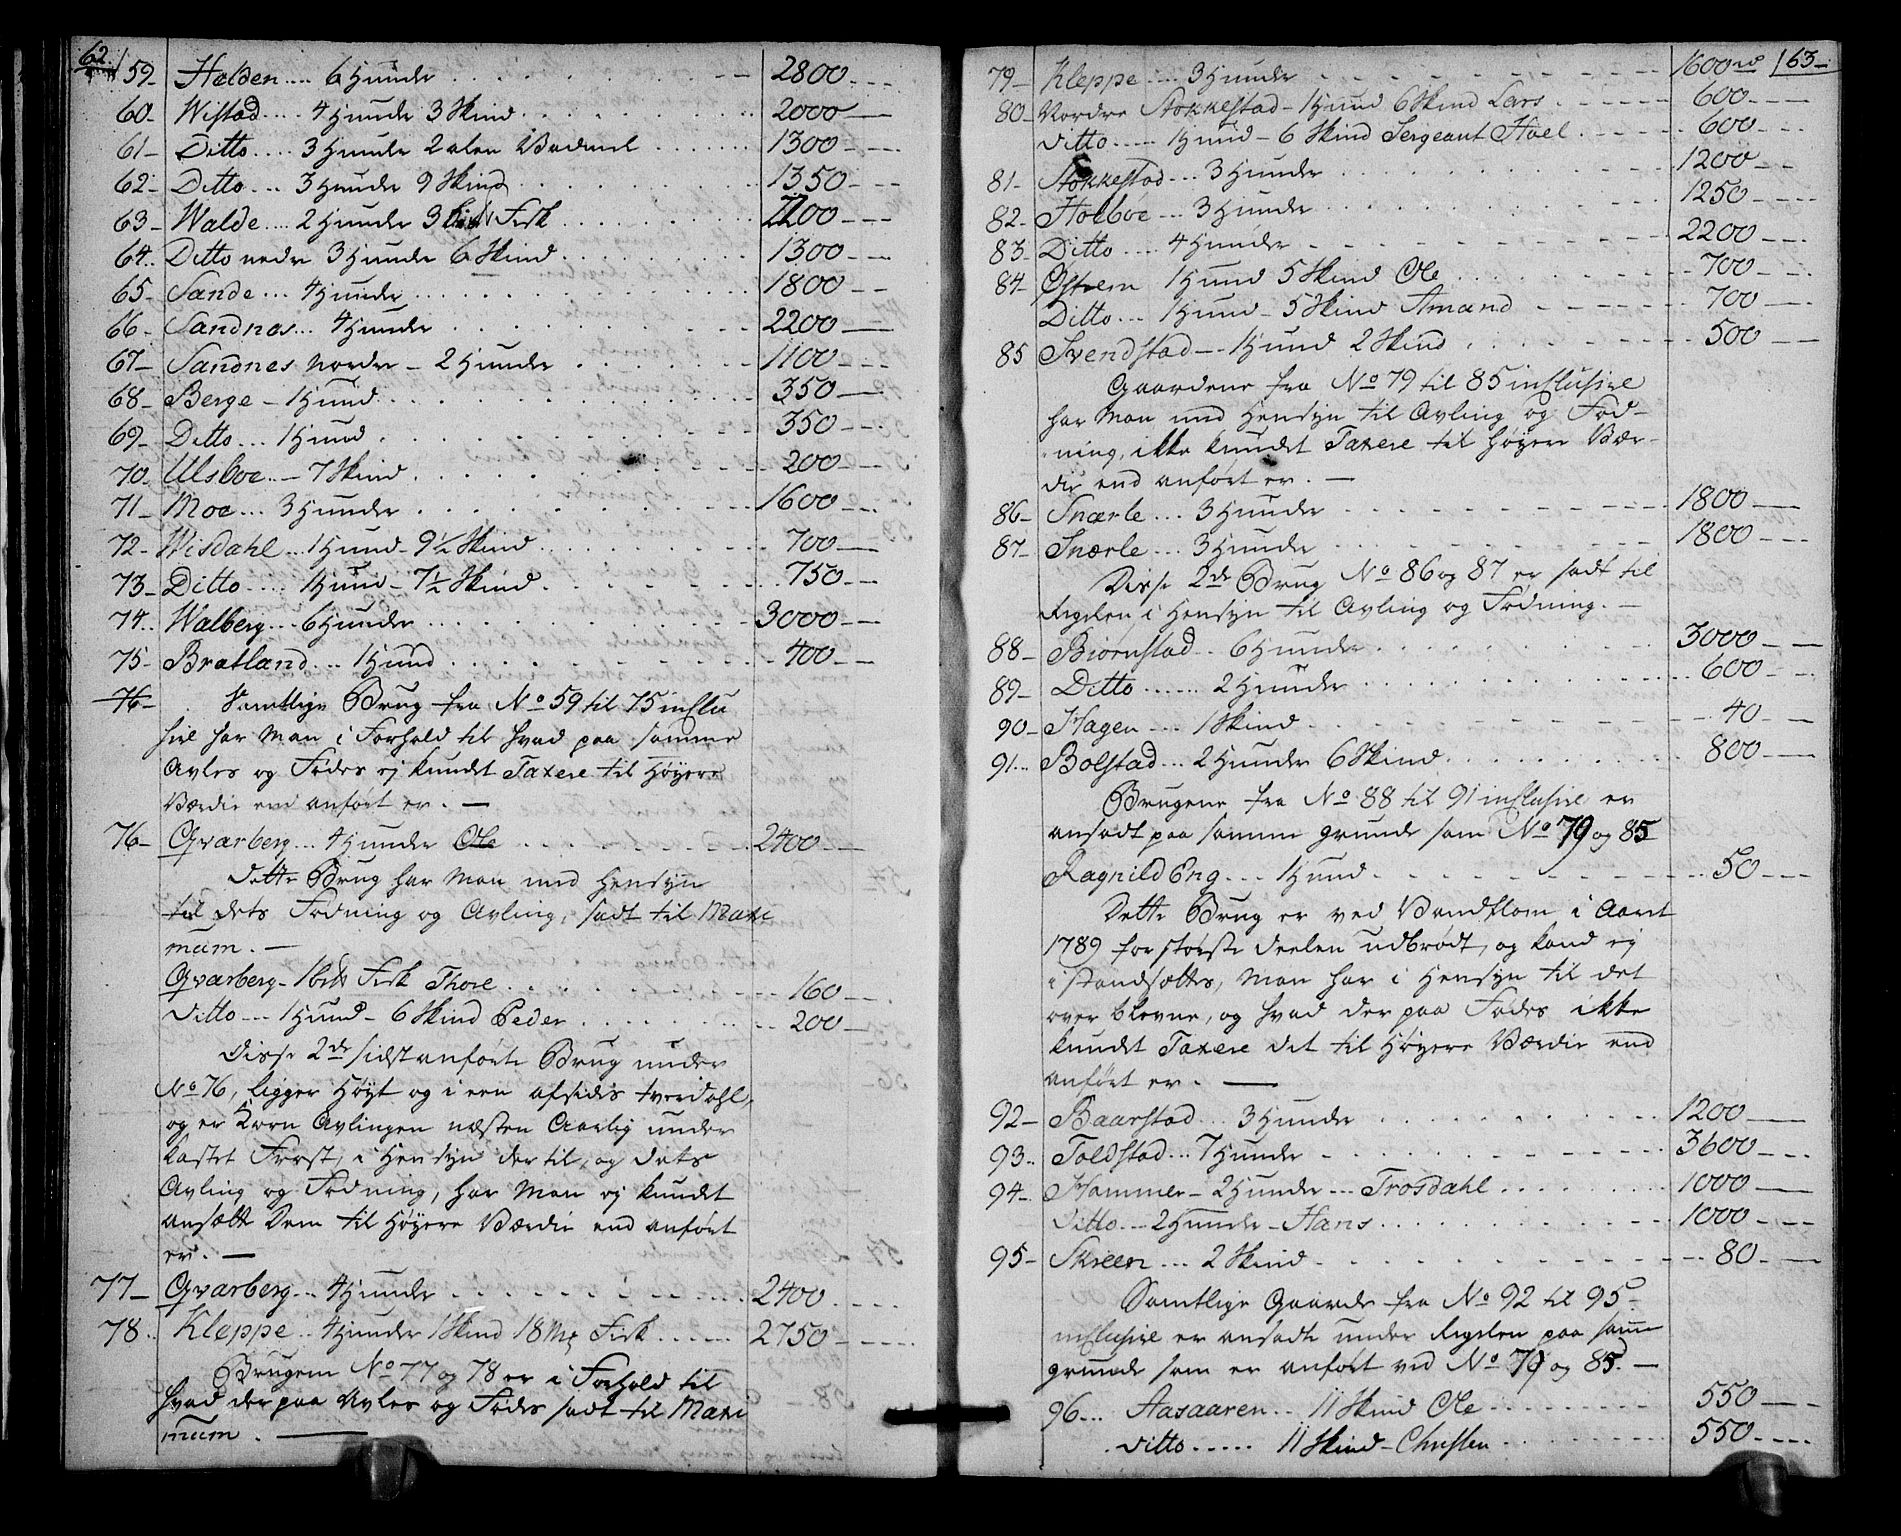 62.
59 Holden .... 6 Hunder 2800
60 Wistad .... 4 Hunder 3 Skind 2000
61 Ditto .... 3 Hunde 2 alen Vadmel 1300
62 Ditto ... 3 Hunder 9 Skind 1350
63 Walde .... 2 Hunder 3 Fisk 1200
64 Ditto nedre 3 Hunder 6 Skind 1300
65 Sande ... 4 Hunder 1800
66 Sandnes ... 4 Hunder 2200
67 Sandnes Nordre - 2 Hunder 1100
68 Berge - 1 Hund 350
69 Ditto ... 1 Hund 350
70 Ulsboe - 7 Skind 200
71 Moe ... 3 Hunder 1600
72 Wisdahl .. 1 Hund - 9½ Skind 700
73 Ditto .... 1 Hund - 7½ Skind 750
74 Walberg ... 6 Hunder 3000
75 Bratland ... 1 Hund 400
76 Samtlige Brug fra No 59 til 75 inclu
sive har Man i Forhold til hvad paa samme
Avles og Fødes ej kundet Taxere til Høyere
Værdie end anført er. —
76 Qvarberg ... 4 Hunder Ole 2400
Dette Brug har Man med Hensyn
til dets Fødning og Avling, sadt til Maxi
mum. —
Qvarberg - 1 Fisk Thore 160
Ditto --- 1 Hund - 6 Skind Peder 200
Disse 2de sidst anførte Brug under
No 76, ligger Høyt og i een afsides tverdahl,
og er Korn Avlingen næsten Aarlig under
kastet Frost, i Hensyn dertil, og dets
Avling og Fødning, har Man ej kundet
ansætte dem til Høyere Værdie end anført
er. —
77 Qvarberg ... 4 Hunder 2400
78 Kleppe .. 4 Hunder 1 Skind 18 Mk Fisk 2750
Brugene No 77 og 78 er i Forhold til
hvad der paa Avles og Fødes sadt til Maxi
mum. —
63
79 Kleppe .... 3 Hunder 1600 rd
80 Nordre Stokkestad - 1 Hund 6 Skind Lars 600
Ditto .... 1 Hund - 6 Skind Sergeant Hoel 600
81 Stokkestad ... 3 Hunder 1200
82 Holboe ... 3 Hunder 1250
83 Ditto .... 4 Hunder 2200
84 Østrem 1 Hund 5 Skind Ole 700
Ditto ... 1 Hund - 5 Skind Amund 700
85 Svendstad - 1 Hund 2 Skind 500
Gaardene fra No 79 til 85 inclusive
har Man med Hensyn til Avling og Fød-
ning, ikke kundet Taxere til høyere Vær-
die end anført er. —
86 Snærle ... 3 Hunder 1800
87 Snærle ... 3 Hunder 1800
Disse 2de Brug No 86 og 87 er sadt til
Regelen, i Hensyn til Avling og Fødning. —
88 Biørnstad .. 6 Hunder 3000
89 Ditto ...... 2 Hunder 600
90 Hagen --- 1 Skind 40
91 Bolstad ... 2 Hunder 6 Skind 800
Brugene fra No 88 til 91 inclusive er
ansadt paa samme grunde som No 79 og 85
Ragnild Eng ... 1 Hund 50
Dette Brug er ved Vandflom i Aaret
1789 for største Deelen udbrødt, og kand ej
istandsættes, Man har i Hensyn til det
overblevne, og hvad der paa Fødes ikke
kundet Taxere det til Høyere Værdie end
anført er. —
92 Baarstad ... 3 Hunder 1200
93 Toldstad ... 7 Hunder 3600
94 Hammer - 2 Hunder ... Trosdahl 1000
Ditto ... 2 Hunder - Hans 1000
95 Skreen ... 2 Skind 80
Samtlige Gaarde fra No 92 til 95
inclusive er ansadte under Regelen paa samme
grunde som er anført ved No 79 og 85. —
96 Aasaaren .. 11 Skind Ole 550
Ditto ..... 11 Skind - Christen 550